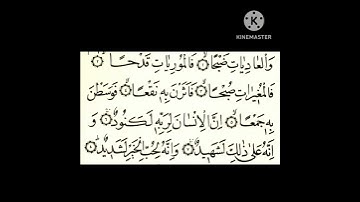 KINEMASTER
وَالْعَادِيَاتِ ضَبْحًا ۝ فَالْمُورِيَاتِ قَدْحًا ۝
فَالْمُغِيرَاتِ صُبْحًا ۝ فَأَثَرْنَ بِهِ نَقْعًا ۝ فَوَسَطْنَ
بِهِ جَمْعًا ۝ إِنَّ الْإِنْسَانَ لِرَبِّهِ لَكَنُودٌ ۝ وَ
إِنَّهُ عَلَىٰ ذَٰلِكَ لَشَهِيدٌ ۝ وَإِنَّهُ لِحُبِّ الْخَيْرِ لَشَدِيدٌ ۝